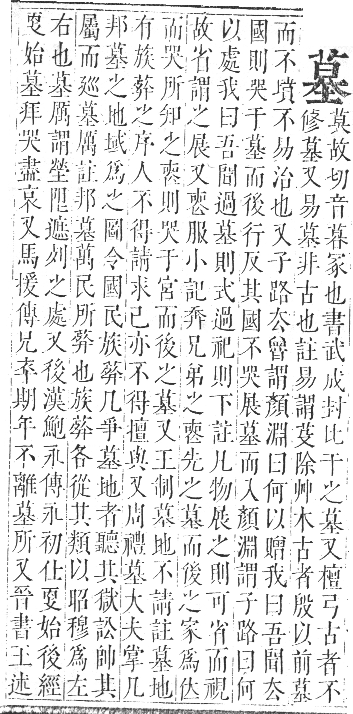 墓莫故切音暮冢也書武成封比干之墓又檀弓古者不
修墓又易墓非古也註易謂芟除艸木古者殷以前墓
而不墳不易治也又子路去曾謂顏淵曰何以贈我曰吾聞去
國則哭于墓而後行反其國不哭展墓而入顏淵謂子路曰何
以處我曰吾聞過墓則式過祀則下註凡物展之則可省而視
故省謂之展又喪服小記奔兄弟之喪先之墓而後之家為位
而哭所知之喪則哭于宮而後之墓又王制墓地不請註墓地
有族葬之序人不得請求己亦不得擅與又周禮墓大夫掌凡
邦墓之地域為之圖令國民族葬凡爭墓地者聽其獄訟帥其
屬而廵墓厲註邦墓萬民所葬也族葬各從其類以昭穆為左
右也墓厲謂塋限遮列之處又後漢鮑永傳永初仕更始後經
更始墓拜哭盡哀又馬援傳兄卒期年不離墓所又晉書王述